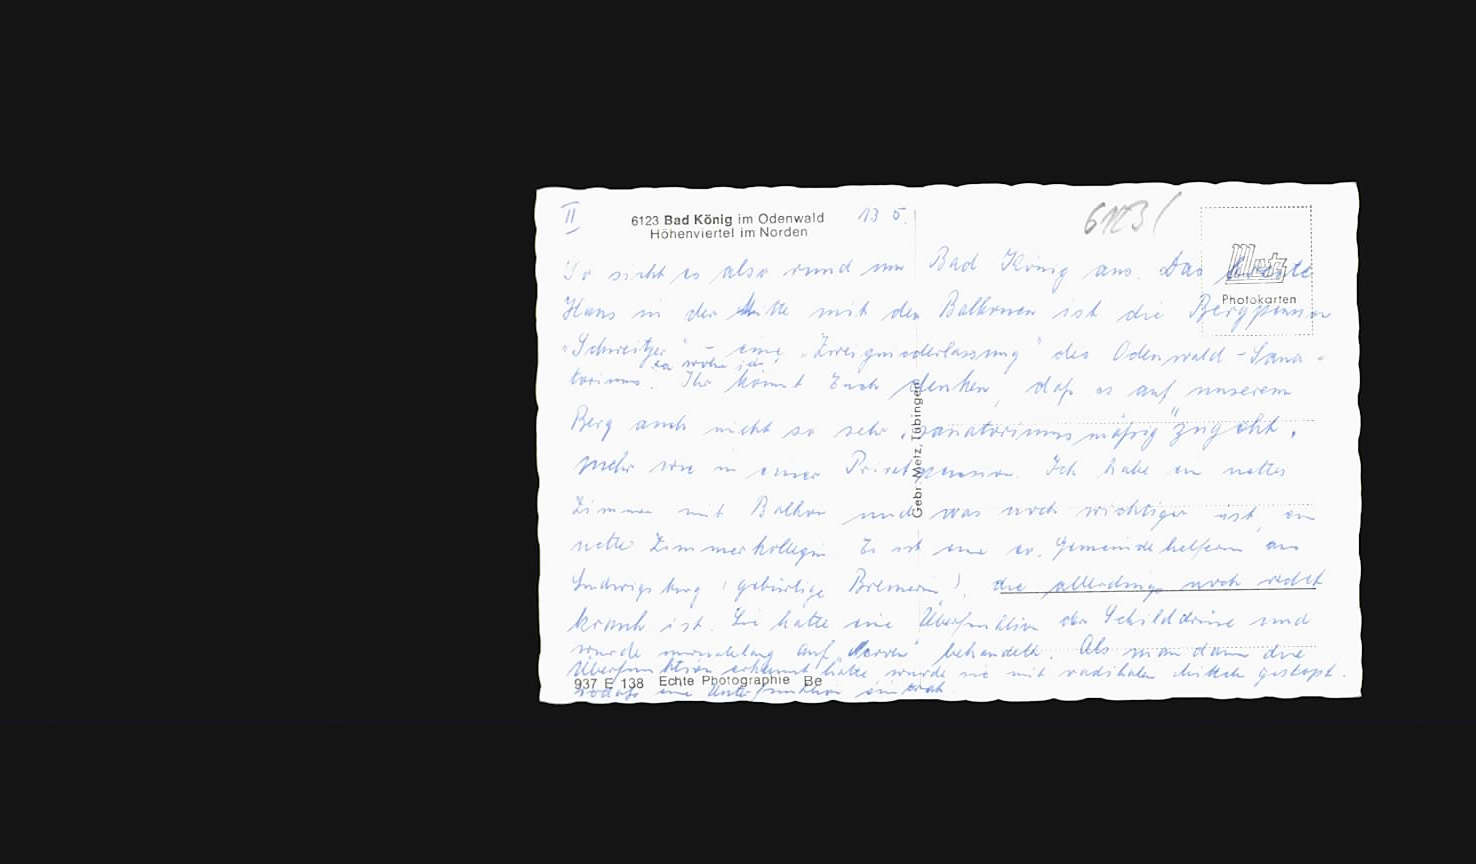 II
6123 Bad König im Odenwald
Höhenviertel im Norden
13. 5.
6123/
Metz
Photokarten
So sieht es also rund um Bad König aus. Das
Haus in der Mitte mit den Balkonen ist die Bergpension
"Schweitzer" – eine "Zweigniederlassung" des Odenwald-Sana-
toriums. Ihr könnt Euch denken, daß es auf unserem
da wohne ich!
Berg auch nicht so sehr "sanatoriumsmäßig" zugeht,
mehr wie in einer Privatpension. Ich habe ein nettes
Zimmer mit Balkon und was noch wichtiger ist, eine
nette Zimmerkollegin. Es ist eine ev. Gemeindehelferin aus
Ludwigsburg (gebürtige Bremerin!), die allerdings noch recht
krank ist. Sie hatte eine Überfunktion der Schilddrüse und
wurde monatelang auf "Nerven" behandelt. Als man dann die
Überfunktion erkannt hatte, wurde sie mit radikalen Mitteln gestoppt.
sodaß eine Unterfunktion eintrat.
Gebr. Metz, Tübingen
937 E 138 Echte Photographie Be